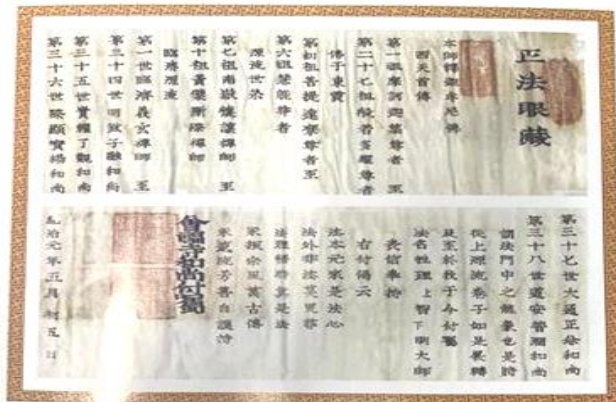 正法眼藏
本師釋迦牟尼佛
西天首傳
第一祖摩訶迦葉尊者 至
第二十七祖般若多羅尊者
傳于東震
第初祖菩提達摩尊者 至
第六祖慧能尊者
源流世系
第七祖南嶽懷讓禪師 至
第十祖黃檗斷際禪師
臨濟源流
第一世臨濟義玄禪師 至
第三十四世明
子融和尚
第三十五世實
了觀和尚
第三十六世際
寶揚和尚
第三十七世大通正
和尚
第三十八世道安
和尚
謂法門中之龍象也
從上源流
子如是展轉
至於我于今付
法名性理上智下明大師
表信奉持
右付偈云
法本元來是法心
法外非法
法理
是法
家
宗風萬古傳
善自護持
會
和尚付囑
治元年五月初五日